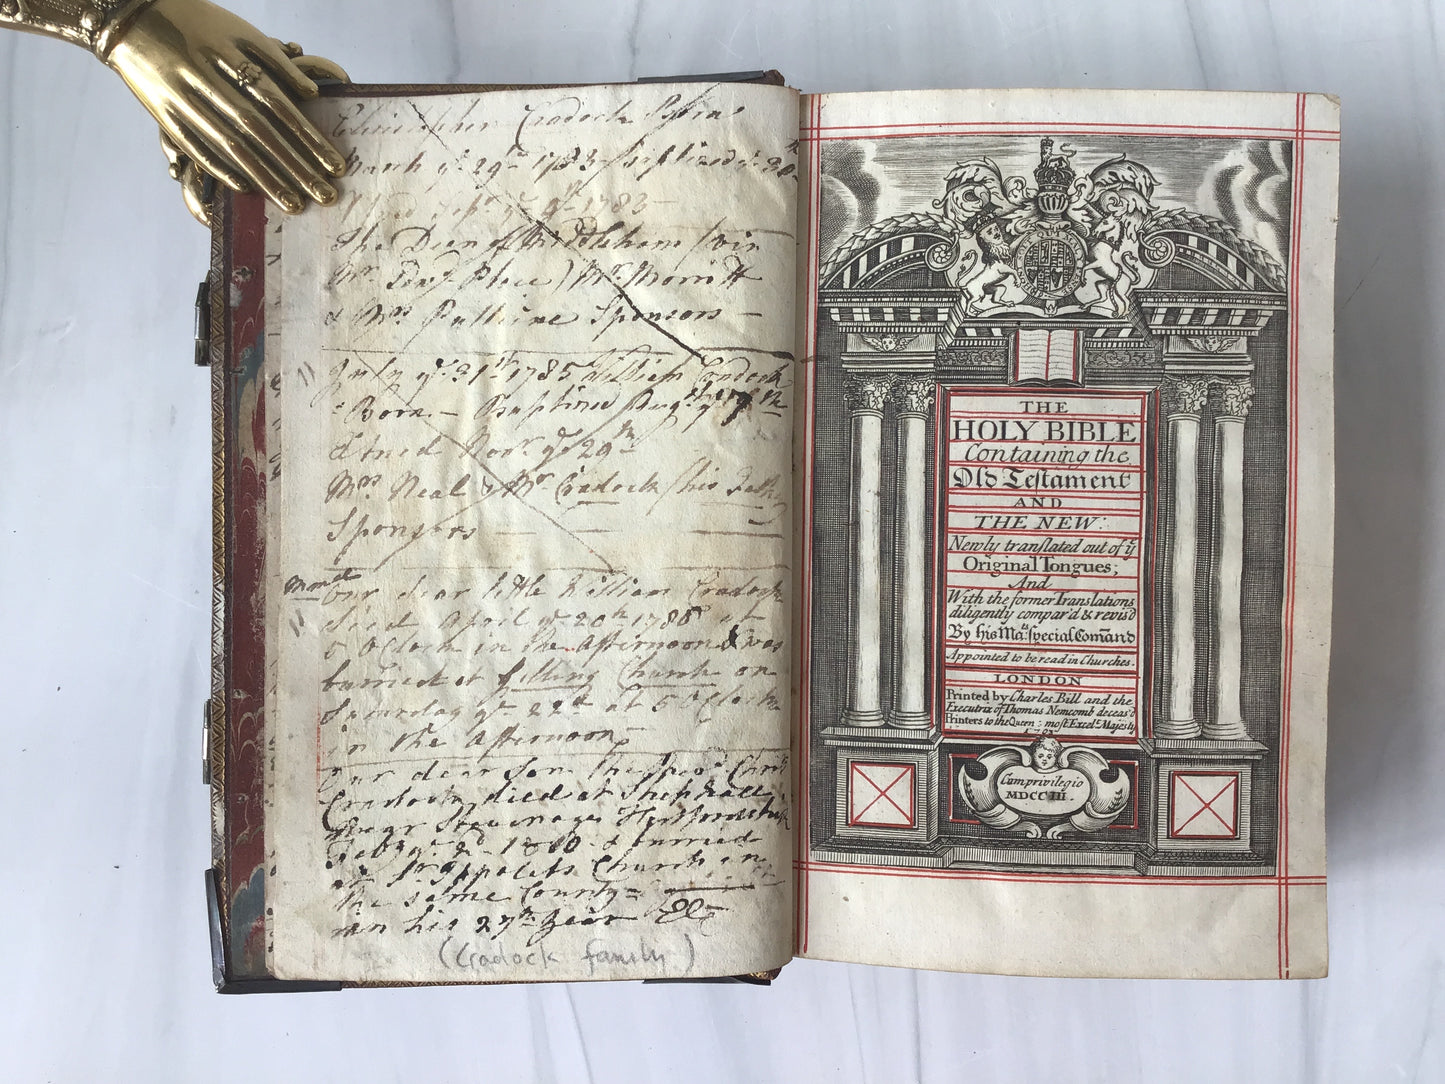 Christopher Cradock Born
March ye 29th 1783 baptized ye 30th
ye 9th 1783
The Dean of Middleham
Mr Morritt
& Mrs Pulleine Sponsors
July ye 31st 1785 William Cradock
Born Baptized Augst ye
Novr ye 29th
Mrs Neal & Mr Cradock his Father
Sponsers
Our dear little William Cradock
died April ye 20th 1786 at
5 OClock in the Afternoon & was
burried at Gilling Church on
Saturday ye 22d at 5 OClock
in the Afternoon
Our dear Son The Revd Christr
Cradock died at Shephall
near Stevenage Hertfordshire
Feby ye 2d 1810 & burried
at Church in
the same County
in his 27th year
(Cradock family)
THE
HOLY BIBLE
Containing the
Old Testament
AND
THE NEW:
Newly translated out of ye
Original Tongues;
And
With the former Translations
diligently compar'd & revis'd
By his Mats. special Comand
Appointed to be read in Churches.
LONDON
Printed by Charles Bill and the
Executrix of Thomas Newcomb deceas'd
Printers to the Queens most Excelt. Majesty
1703
Cum privilegio
MDCCIII.